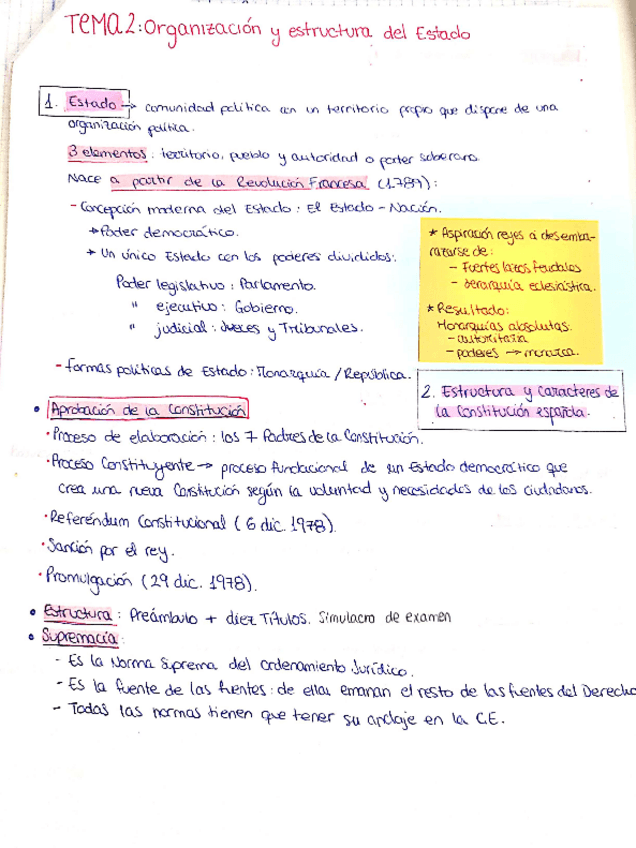 TEMA.2: Organización y estructura del Estado
1. Estado → comunidad política con un territorio propio que dispone de una
organización política.
3 elementos: territorio, pueblo y autoridad o poder soberano.
Nace a partir de la Revolución Francesa (1789):
- Concepción moderna del Estado: El Estado-Nación.
→ Poder democrático.
→ Un único Estado con los poderes divididos:
Poder legislativo: Parlamento.
" ejecutivo: Gobierno.
" judicial: Jueces y Tribunales.
* Aspiración reyes a desemba-
razarse de:
- Fuertes lazos feudales
- Jerarquía eclesiástica.
* Resultado:
Monarquías absolutas:
- autoritaria
- poderes → monarca.
- Formas políticas de Estado: Monarquía / República.
2. Estructura y caracteres de
la Constitución española.
• Aprobación de la Constitución
· Proceso de elaboración: los 7 Padres de la Constitución.
· Proceso Constituyente → proceso fundacional de un Estado democrático que
crea una nueva Constitución según la voluntad y necesidades de los ciudadanos.
· Referéndum Constitucional (6 dic. 1978).
· Sanción por el rey.
· Promulgación (29 dic. 1978).
• Estructura: Preámbulo + diez Títulos. Simulacro de examen
• Supremacía:
- Es la Norma Suprema del Ordenamiento Jurídico.
- Es la fuente de las fuentes: de ella emanan el resto de las fuentes del Derecho
- Todas las normas tienen que tener su anclaje en la CE.